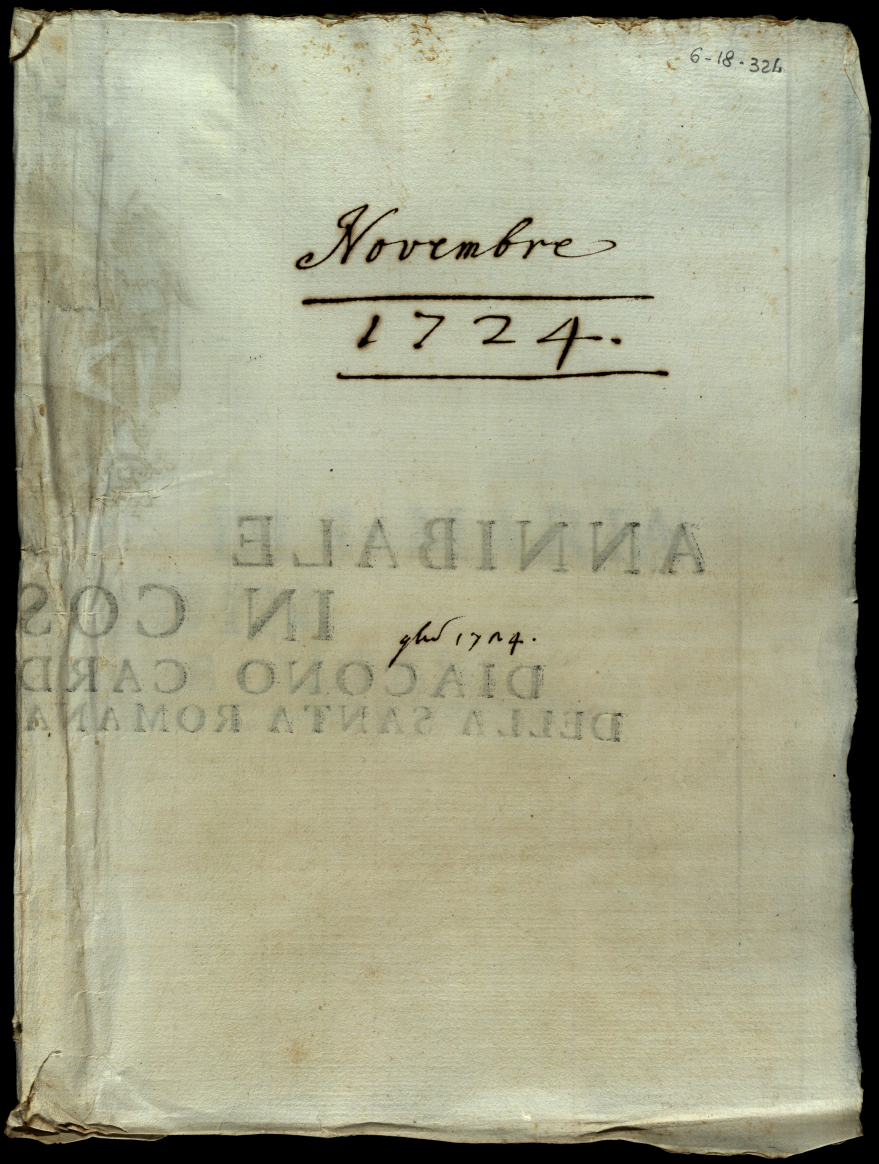 6-18-324
Novembre
1724.
ANNIBALE
IN COS
1724.
DIACONO CARD
DELLA SANTA ROMANA